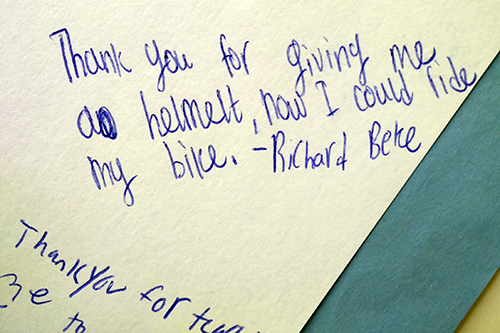 Thank you for giving me
a helmelt, now I could ride
my bike. - Richard Beke
Thank you for
me
to